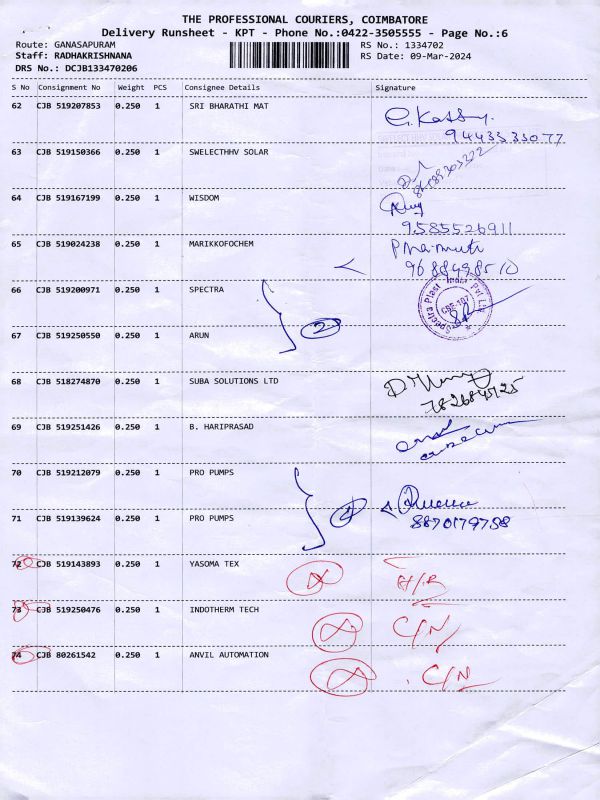 THE PROFESSIONAL COURIERS, COIMBATORE
Delivery Runsheet - KPT - Phone No.:0422-3505555 - Page No.:6
Route: GANASAPURAM RS No.: 1334702
Staff: RADHAKRISHNANA RS Date: 09-Mar-2024
DRS No.: DCJB133470206
S No Consignment No Weight PCS Consignee Details Signature
62 CJB 519207853 0.250 1 SRI BHARATHI MAT
9443333077
63 CJB 519150366 0.250 1 SWELECTHHV SOLAR
64 CJB 519167199 0.250 1 WISDOM
9585526911
65 CJB 519024238 0.250 1 MARIKKOFOCHEM
9688498510
66 CJB 519200971 0.250 1 SPECTRA
Spectra Plast India Pvt Ltd
CBE-107
2
67 CJB 519250550 0.250 1 ARUN
68 CJB 518274870 0.250 1 SUBA SOLUTIONS LTD
69 CJB 519251426 0.250 1 B. HARIPRASAD
70 CJB 519212079 0.250 1 PRO PUMPS
71 CJB 519139624 0.250 1 PRO PUMPS
8870179758
72 CJB 519143893 0.250 1 YASOMA TEX
73 CJB 519250476 0.250 1 INDOTHERM TECH C/N
74 CJB 80261542 0.250 1 ANVIL AUTOMATION C/N